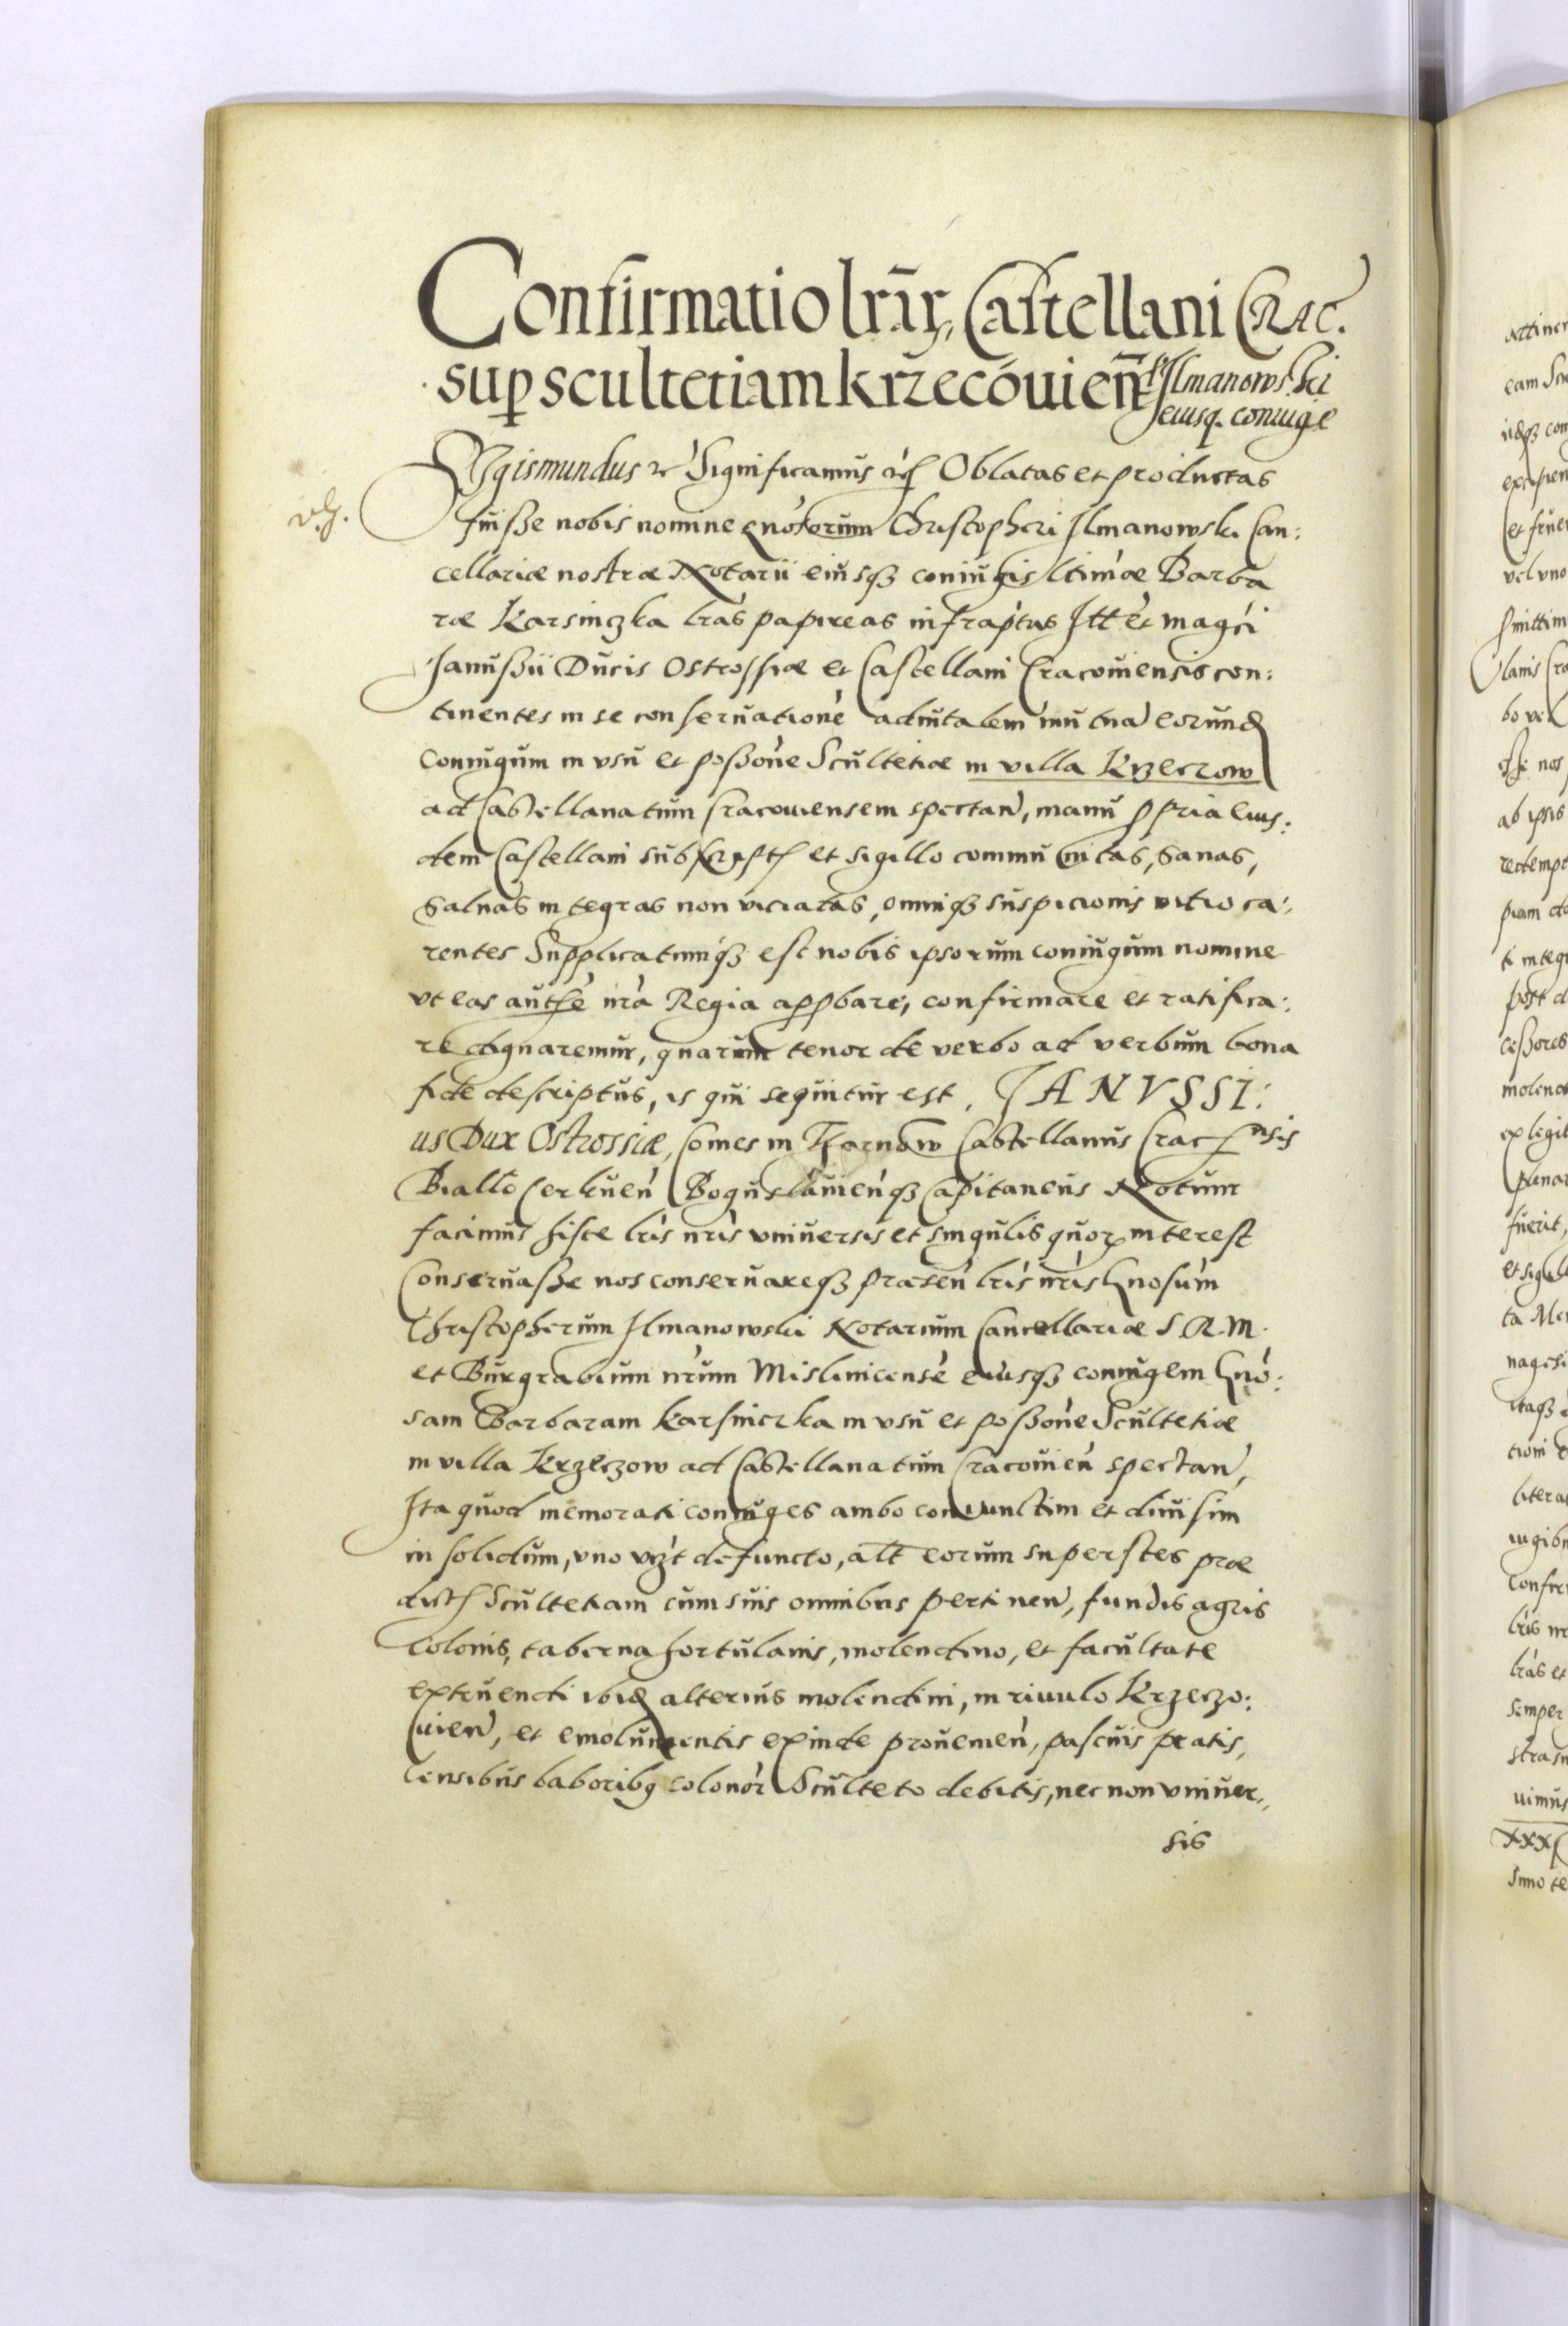 Confirmatio lrar, Castellani CRAC.
sup scultetiam krzecouien p Ilmanowski
eiusq. coniuge
Sigismundus Significamus Oblatas et productas
fuisse nobis nomine gnosorum Christopheri Ilmanowski Can:
cellariæ nostræ Notarii eiusq coniugis ltimæ Barba
ræ Karsinczka lras papireas infraptas Ill et magci
Janussii Ducis Ostrossiæ et Castellani Cracouiensis con:
tinentes in se conseruatione aduitalem mutua eorund
coniugum in vsu et possone Scultetiæ in villa Krzeczow
ad Castellanatum Cracouiensem spectan, manu ppria eius:
dem Castellani subscript et sigillo communitas, sanas,
saluas integras non viciatas, omniq suspicionis vitio ca:
rentes Supplicatumq est nobis ipsorum coniugum nomine
vt eas authe nra Regia approbare, confirmare et ratifica:
re dignaremur, quarum tenor de verbo ad verbum bona
fide descriptus, is qui sequitur est, JANVSSI:
us Dux Ostrossiæ, Comes in Tarnow Castellanus Crac nsis
Biallo Cerkuen Boguslauienq Capitaneus Notum
facimus hisce lris nris vniuersis et singulis quor interest
Conseruasse nos conseruareq præsen lris nris Gnosum
Christopherum Ilmanowski Notarium Cancellariæ S.R.M.
et Burgrabium nrum Mislinicense eiusq coniugem Gno:
sam Barbaram Karsinczka in vsu et possone Scultetiæ
in villa Krzeczow ad Castellanatum Cracouien spectan,
Ita quod memorati coniuges ambo coniunctim et diuisim
in solidum, vno vzt defuncto, alt eorum superstes præ
dict Scultetiam cum suis omnibus pertinen, fundis agris
colonis, taberna hortulanis, molendino, et facultate
extruendi ibid alterius molendini, in riuulo Krzeczo:
uien, et emolumentis exinde prouenien, pascuis pratis,
censibus laborib colonor Sculteto debitis, nec non vniuer,,
sis